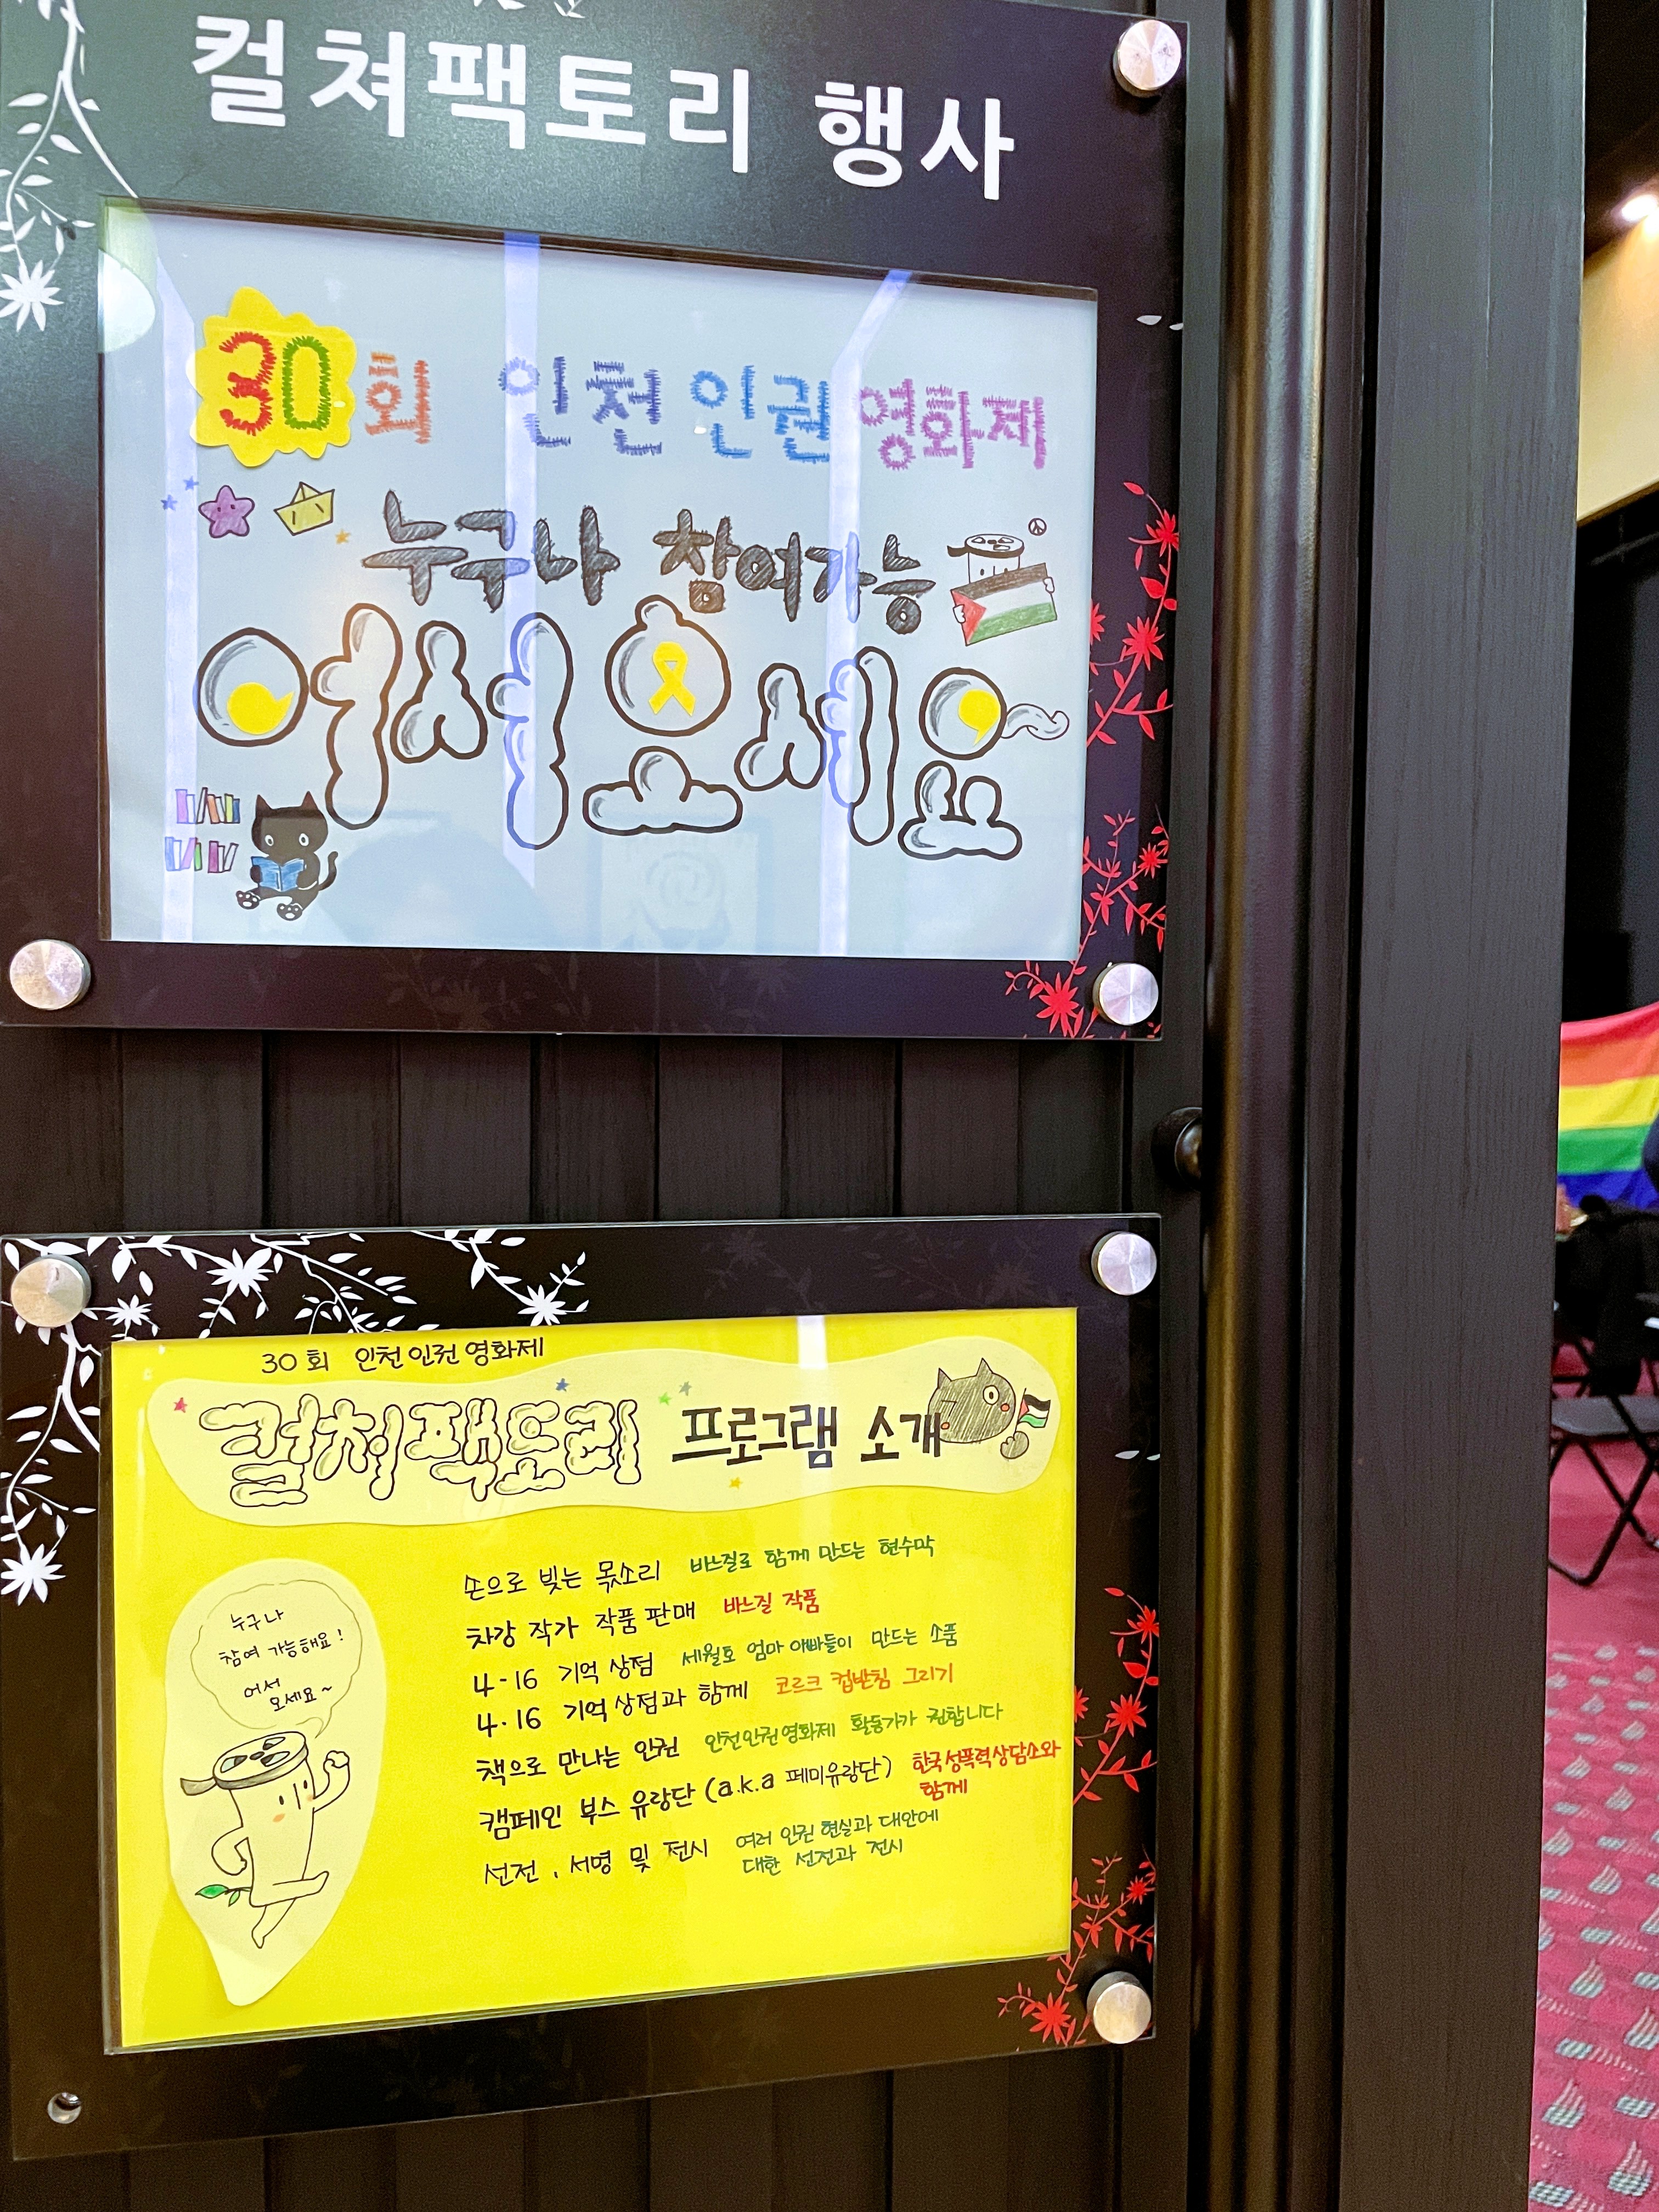 컬쳐팩토리 행사
30회 인천 인권 영화제
누구나 참여가능
어서 오세요
30회 인천인권영화제
컬처팩토리 프로그램 소개
누구나
참여 가능해요!
어서
오세요~
손으로 빚는 목소리 바느질로 함께 만드는 현수막
차강 작가 작품 판매 바느질 작품
4-16 기억 상점 세월호 엄마 아빠들이 만드는 소품
4·16 기억상점과 함께 코르크 컵받침 그리기
책으로 만나는 인권 인천인권영화제 활동가가 권합니다
캠페인 부스 유랑단 (a.k.a 페미유랑단) 한국성폭력상담소와
함께
선전, 서명 및 전시 여러 인권 현실과 대안에
대한 선전과 전시